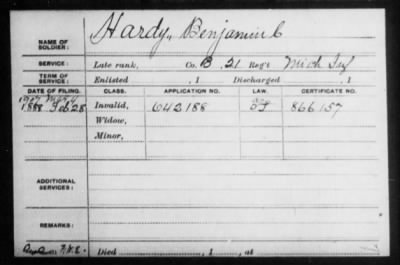 NAME OF SOLDIER: Hardy, Benjamin C
SERVICE: Late rank, Co. B, 21 Reg't Mich Inf
TERM OF SERVICE: Enlisted , 1 Discharged , 1
DATE OF FILING. CLASS. APPLICATION NO. LAW. CERTIFICATE NO.
1888 Feb 28 Invalid, 642188 866157
Widow,
Minor,
ADDITIONAL SERVICES:
REMARKS:
Died , 1 , at